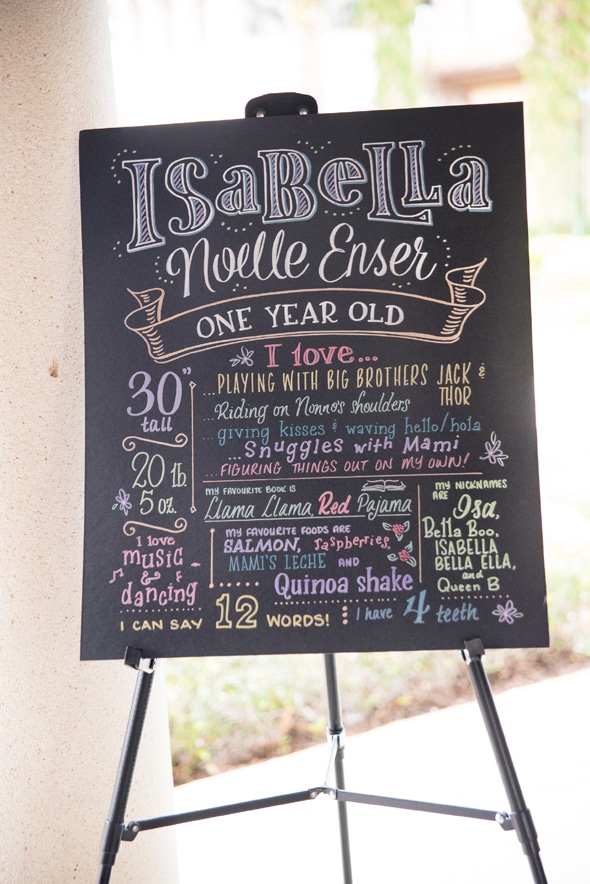 IsaBeLLa
Noelle Enser
ONE YEAR OLD
I love...
30"
tall
20 lb.
5 oz.
I love
music
&
dancing
...PLAYING WITH BIG BROTHERS JACK &
THOR
...Riding on Nonno's shoulders
...giving kisses & waving hello/hola
...Snuggles with Mami
...FIGURING THINGS OUT ON MY OWN!
MY FAVOURITE BOOK IS
Llama Llama Red Pajama
MY FAVOURITE FOODS ARE
SALMON, raspberries,
MAMI'S LECHE AND
Quinoa shake
MY NICKNAMES
ARE
Isa,
Bella Boo,
ISABELLA
BELLA ELLA,
and
Queen B
I CAN SAY 12 WORDS!
I have 4 teeth